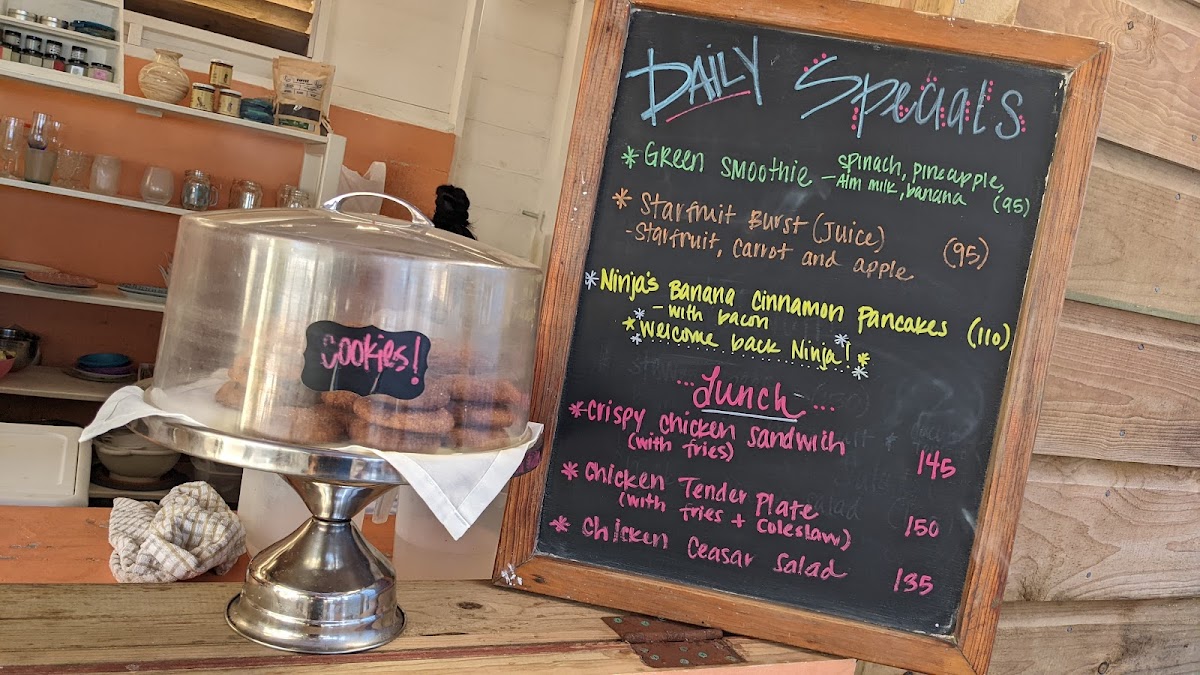 Daily Specials
* Green smoothie - spinach, pineapple,
Alm milk, banana (95)
* Starfruit Burst (Juice) (95)
- Starfruit, carrot and apple
* Ninja's Banana Cinnamon Pancakes (110)
- with bacon
* Welcome back Ninja! *
... Lunch ...
* Crispy chicken sandwich 145
(with fries)
* Chicken Tender Plate 150
(with fries + coleslaw)
* Chicken Ceasar Salad 135
Cookies!